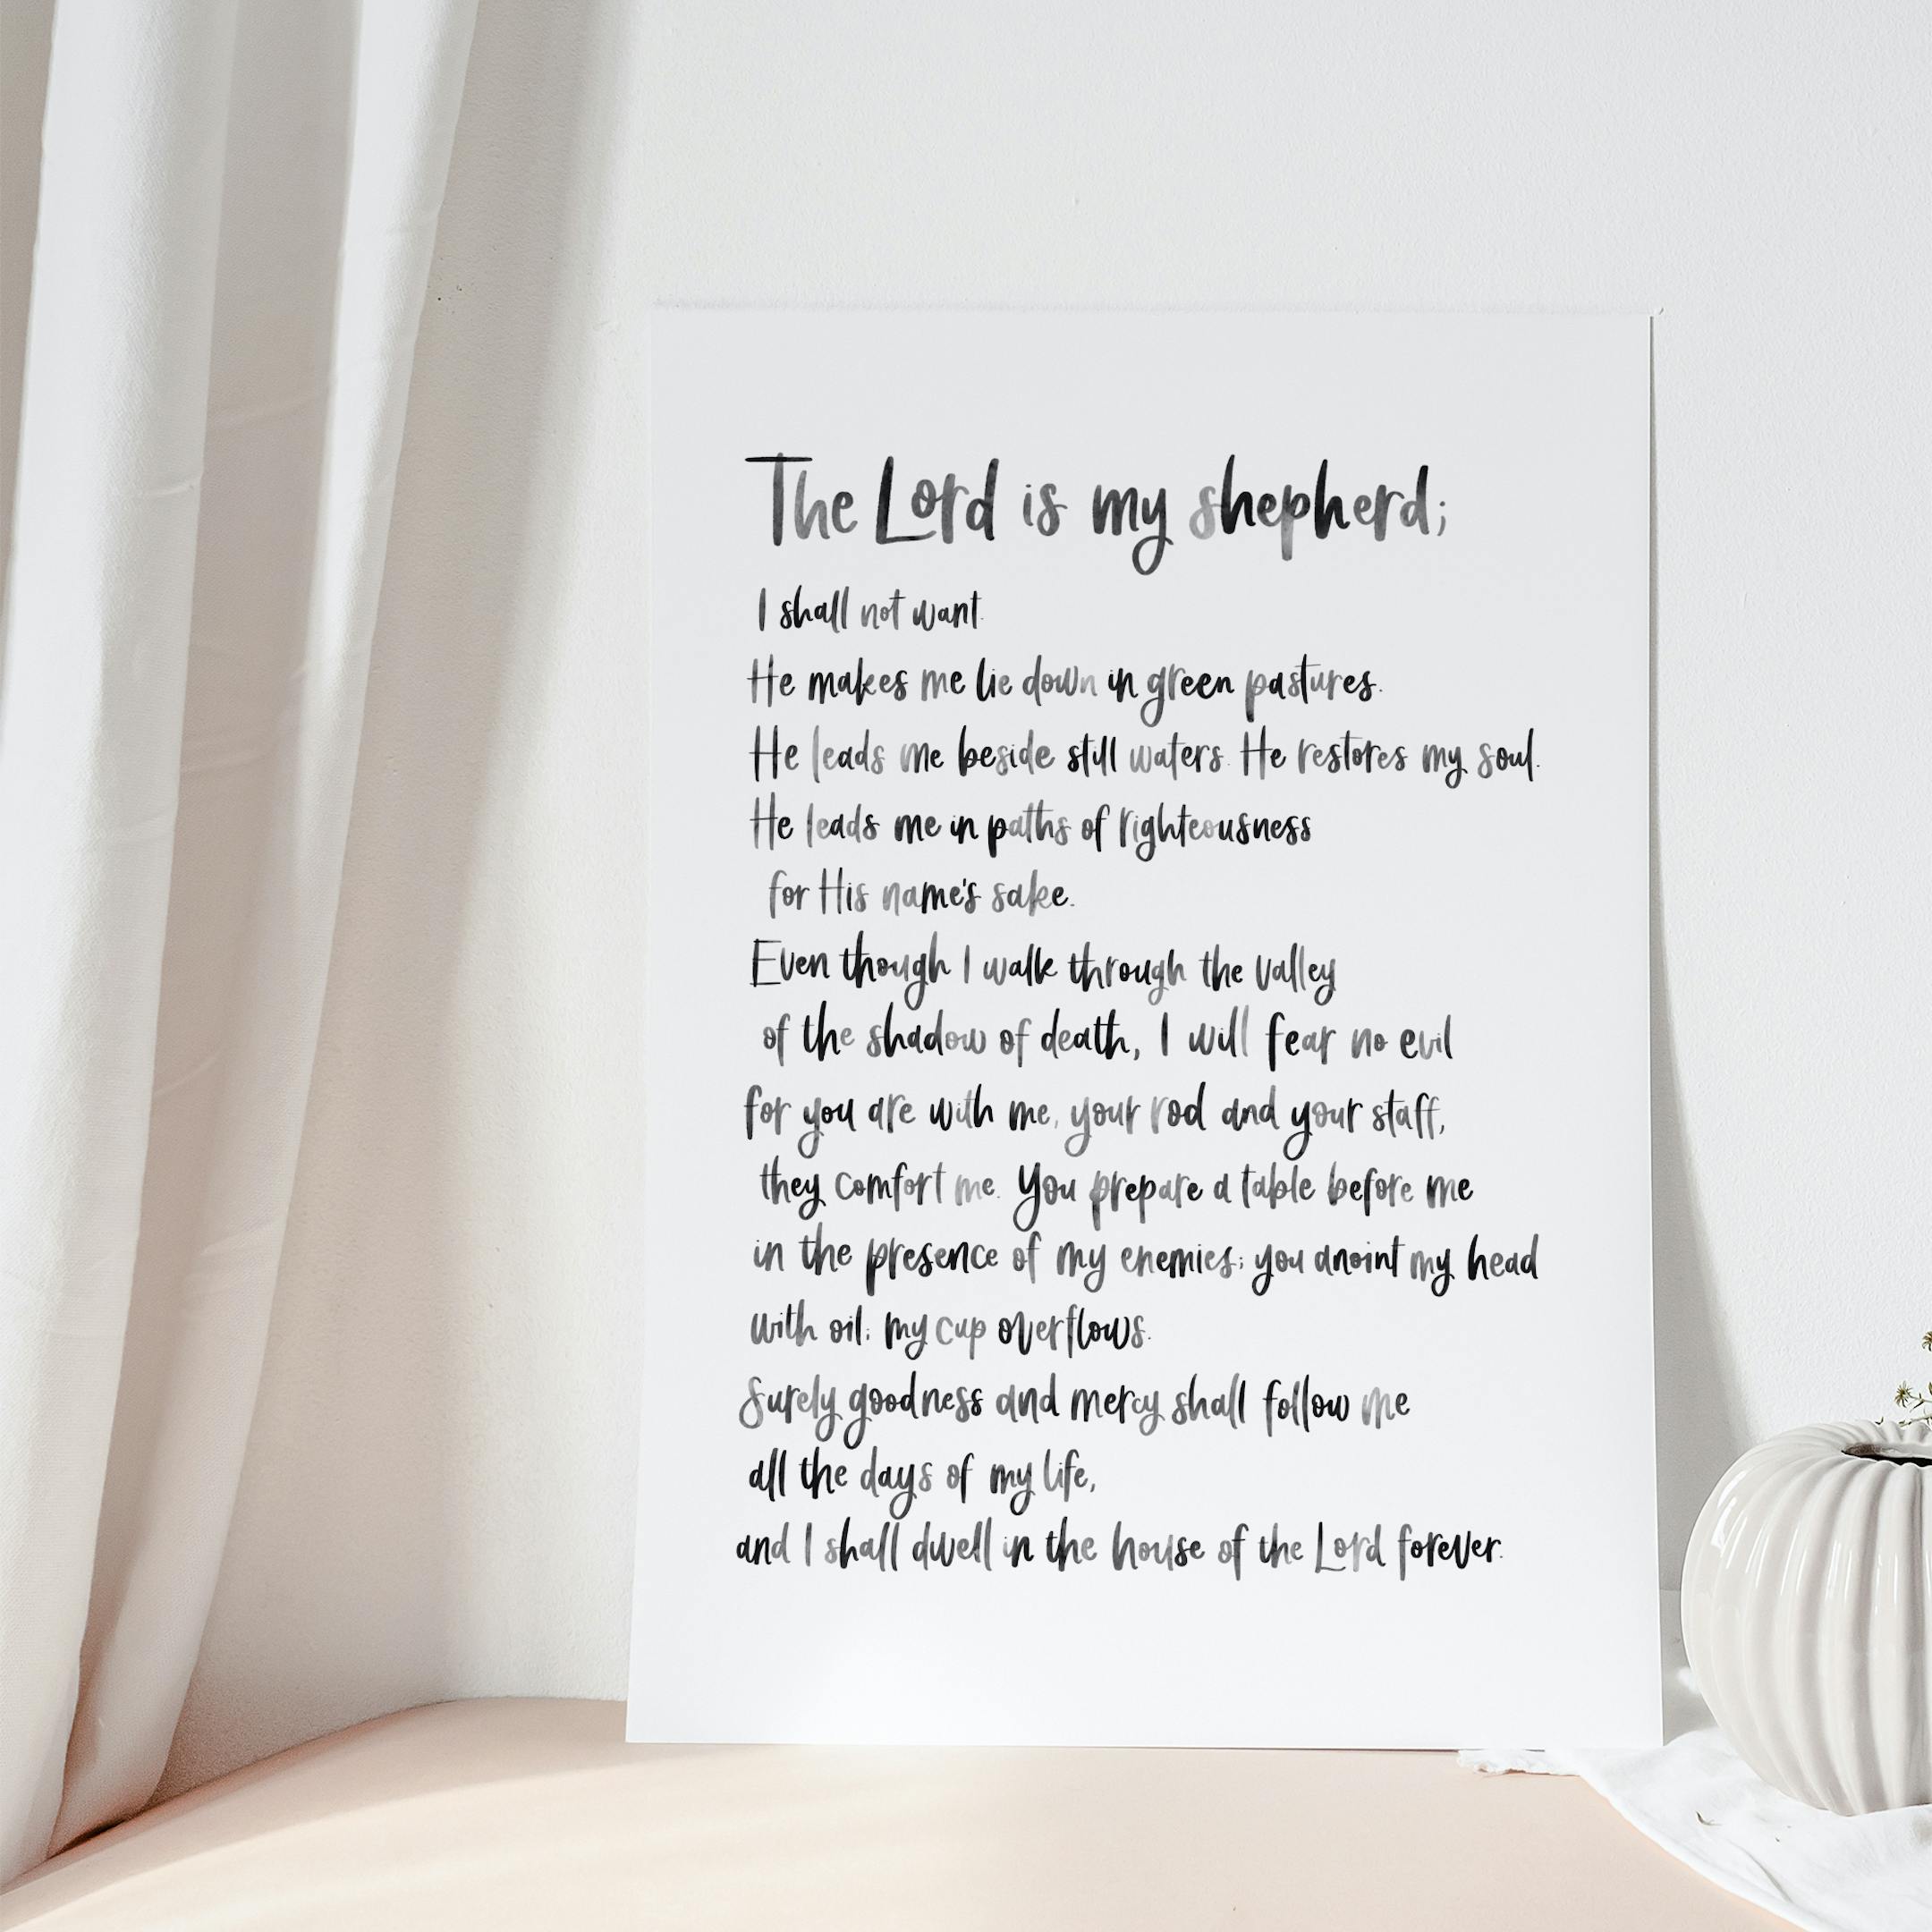 The Lord is my shepherd;
I shall not want.
He makes me lie down in green pastures.
He leads me beside still waters. He restores my soul.
He leads me in paths of righteousness
for His name's sake.
Even though I walk through the valley
of the shadow of death, I will fear no evil
for you are with me, your rod and your staff,
they comfort me. You prepare a table before me
in the presence of my enemies; you anoint my head
with oil; my cup overflows.
Surely goodness and mercy shall follow me
all the days of my life,
and I shall dwell in the house of the Lord forever.